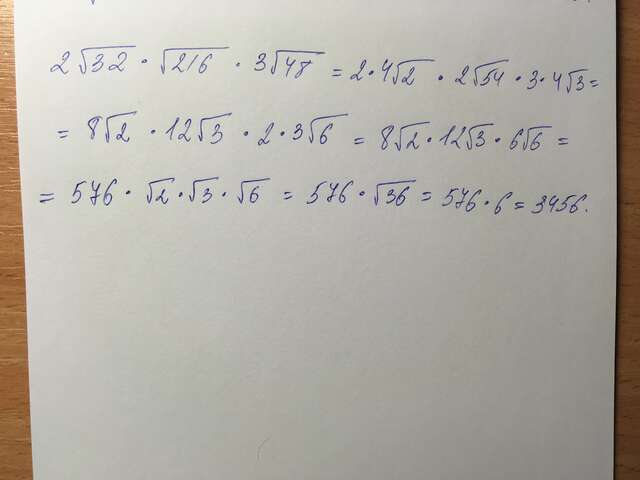 2√32 · √216 · 3√48 = 2·4√2 · 2√54 · 3·4√3 =
= 8√2 · 12√3 · 2·3√6 = 8√2 · 12√3 · 6√6 =
= 576 · √2 · √3 · √6 = 576 · √36 = 576 · 6 = 3456.